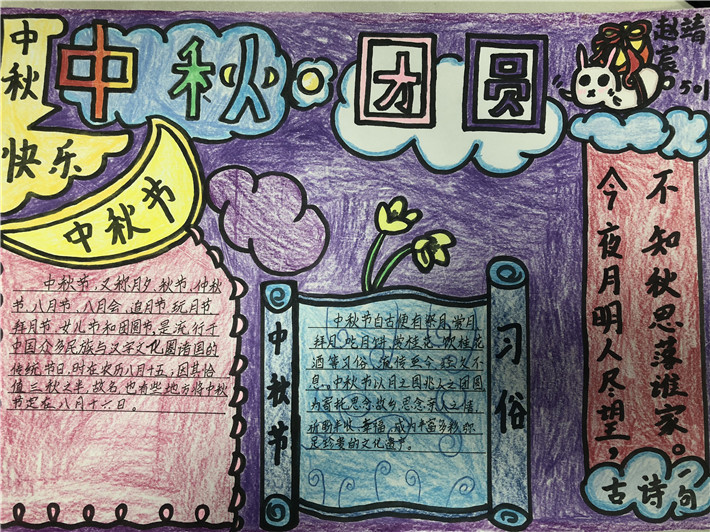 中秋快乐
中秋·团员
赵靖宸。501
中秋节
中秋节,又称月夕,秋节,仲秋
节,八月节,八月会,追月节,玩月节
拜月节,女儿节和团圆节,是流行于
中国众多民族与汉字文化圈诸国的
传统节日,时在农历八月十五;因其恰
值三秋之半,故名,也有些地方将中秋
节定在八月十六日。
中秋节
中秋节自古便有祭月,赏月
拜月,吃月饼,赏桂花,饮桂花
酒等习俗,流传至今,经久不
息。中秋节以月之圆兆人之团圆
为寄托思念故乡,思念亲人之情,
祈盼丰收、幸福,成为丰富多彩,弥
足珍贵的文化遗产。
习俗
今夜月明人尽望,
不知秋思落谁家。
古诗一句